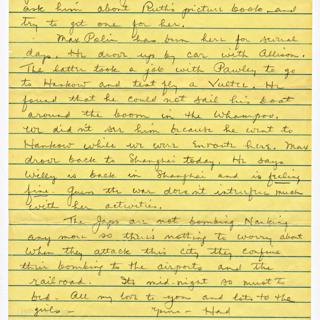 ask him about Ruth's picture book and
try to get one for her.
Max Polin has been here for several
days. He drove up by car with Allison.
The latter took a job with Pawley to go
to Hankow and test fly a Vultee. He
found that he could not sail his boat
around the boom in the Whampoo.
We didn't see him because he went to
Hankow while we were enroute here. Max
drove back to Shanghai today. He says
Willy is back in Shanghai and is feeling
fine. Guess the war doesn't interfere much
with her activities.
The Japs are not bombing Nanking
any more so there's nothing to worry about
when they attack this city they confine
their bombing to the airports and the
railroad. Its mid-night so must to
bed. All my love to you and lots to the
girls —